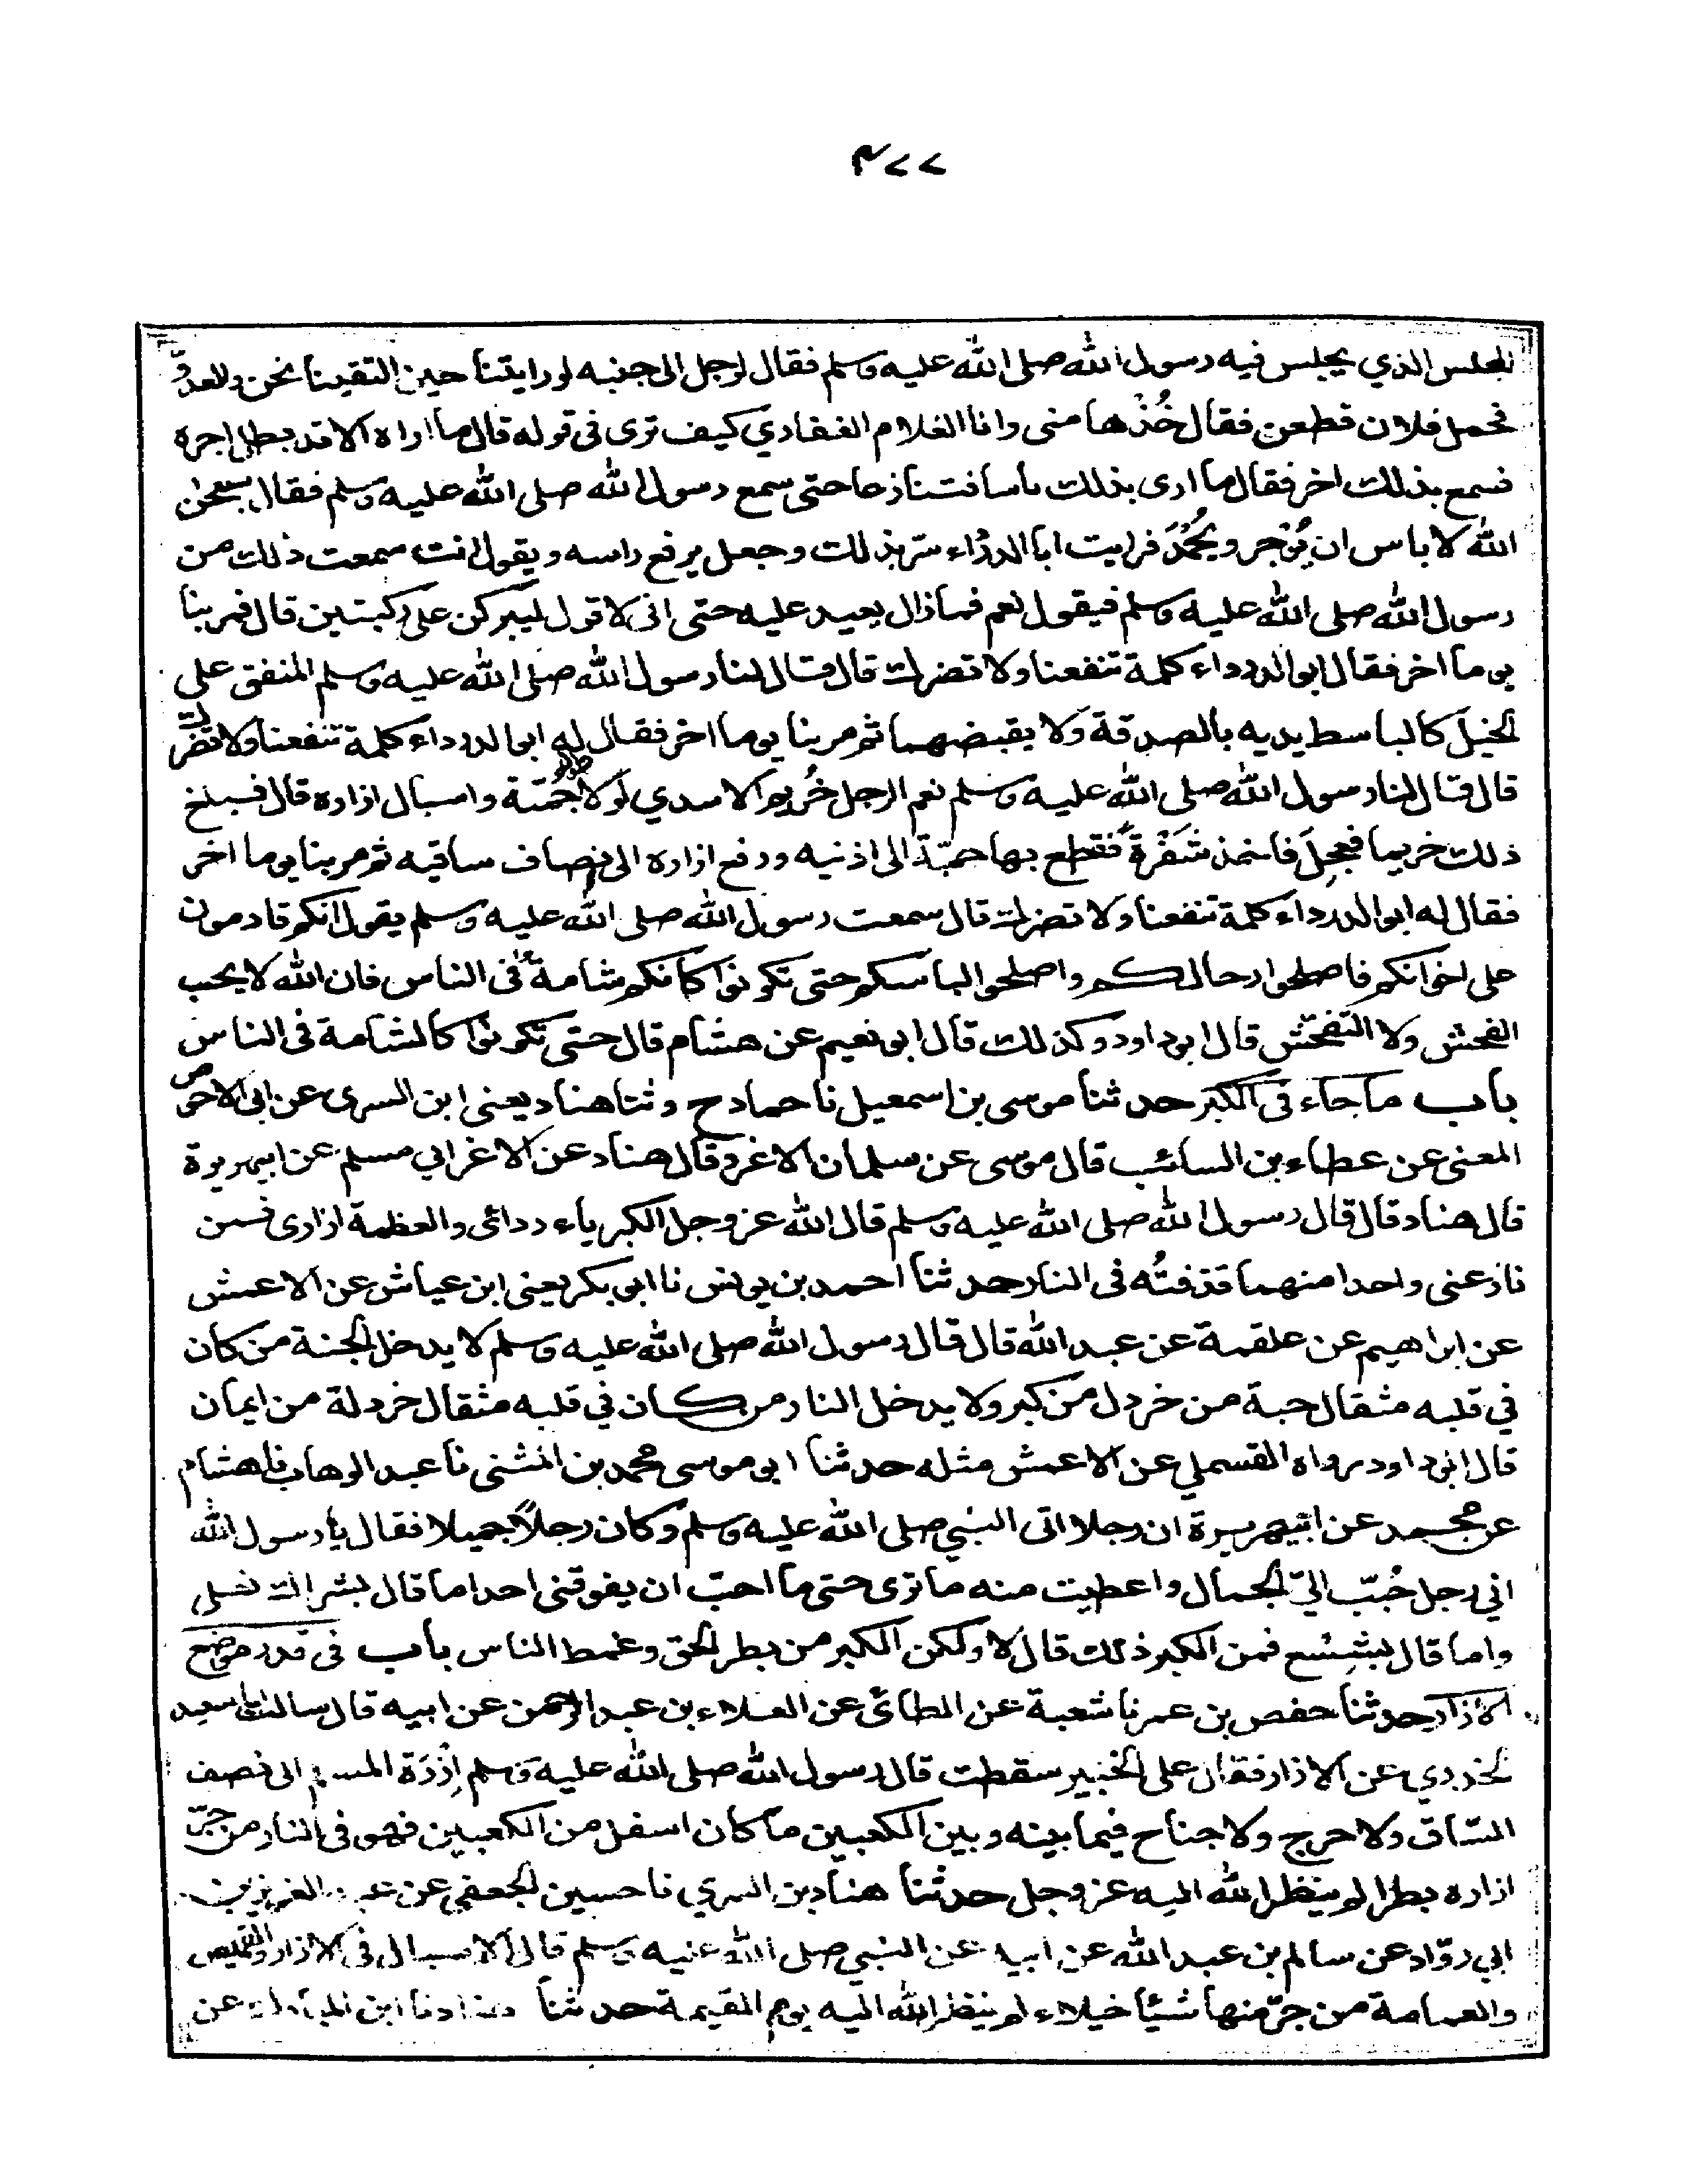 ٣٧٧
المجلس الذي يجلس فيه رسول الله صلى الله عليه وسلم فقال لرجل الى جنبه لو رايتنا حين التقينا نحن والعدوّ
فحمل فلان فطعن فقال خُذْها منى وانا الغلام الغفاري كيف ترى فى قوله قال ما اراه الا قد بطل اجره
فسمع بذلك اخر فقال ما ارى بذلك باسا فتنازعا حتى سمع رسول الله صلى الله عليه وسلم فقال سبحن
الله لا باس ان يُوْجر ويُحْمَدَ فرايت ابا الدرداء سرّ بذلك وجعل يرفع راسه ويقول انت سمعت ذلك من
رسول الله صلى الله عليه وسلم فيقول نعم فما زال يعيد عليه حتى انى لاقول ليبركن على ركبتين قال فمر بنا
يوما اخر فقال ابو الدرداء كلمة تنفعنا ولا تضرك قال قال لنا رسول الله صلى الله عليه وسلم المنفق على
الخيل كالباسط يديه بالصدقة ولا يقبضهما ثم مر بنا يوما اخر فقال له ابو الدرداء كلمة تنفعنا ولا تضرك
قال قال لنا رسول الله صلى الله عليه وسلم نعم الرجل خُريم الاسدي لولا طول جُمّته واسبال ازاره قال فبلغ
ذلك خريما فعجِلَ فاخذ شَفْرةً فقطع بها جمّته الى اذنيه ورفع ازاره الى انصاف ساقيه ثم مر بنا يوما اخر
فقال له ابو الدرداء كلمة تنفعنا ولا تضرك قال سمعت رسول الله صلى الله عليه وسلم يقول انكم قادمون
على اخوانكم فاصلحوا رحالكم واصلحوا لباسكم حتى تكونوا كانكم شامةٌ فى الناس فان الله لا يحب
الفحش ولا التفحّش قال ابو داود وكذلك قال ابو نعيم عن هشام قال حتى تكونوا كالشامة فى الناس
باب ما جاء فى الكبر حدثنا موسى بن اسمعيل نا حماد ح وثنا هناد يعنى ابن السرى عن ابى الاحوص
المعنى عن عطاء بن السائب قال موسى عن سلمان الاغر وقال هناد عن الاغر ابي مسلم عن ابى هريرة
قال هناد قال قال رسول الله صلى الله عليه وسلم قال الله عز وجل الكبرياء ردائى والعظمة ازارى فمن
نازعنى واحدا منهما قذفتُه فى النار حدثنا احمد بن يونس نا ابو بكر يعنى ابن عياش عن الاعمش
عن ابراهيم عن علقمة عن عبد الله قال قال رسول الله صلى الله عليه وسلم لا يدخل الجنة من كان
في قلبه مثقال حبة من خردل من كبر ولا يدخل النار من كان في قلبه مثقال خردلة من ايمان
قال ابو داود رواه القسملي عن الاعمش مثله حدثنا ابو موسى محمد بن المثنى نا عبد الوهاب نا هشام
عن محمد عن ابى هريرة ان رجلا اتى النبي صلى الله عليه وسلم وكان رجلاً جميلا فقال يا رسول الله
اني رجل حُبّب اليّ الجمال واعطيت منه ما ترى حتى ما احبّ ان يفوقنى احد اما قال بشراك نعلى
واما قال بشِسْع فمن الكبر ذلك قال لا ولكن الكبر من بطر الحق وغمط الناس باب فى قدر موضع
الازار حدثنا حفص بن عمر نا شعبة عن العلاء بن عبد الرحمن عن ابيه قال سالت ابا سعيد
الخدري عن الازار فقال على الخبير سقطت قال رسول الله صلى الله عليه وسلم اِزْرَة المسلم الى نصف
السّاق ولا حرج ولا جناح فيما بينه وبين الكعبين ما كان اسفل من الكعبين فهو فى النار من جرّ
ازاره بطرا لم ينظر الله اليه عز وجل حدثنا هناد بن السري نا حسين الجعفي عن عبد العزيز بن
ابي روّاد عن سالم بن عبد الله عن ابيه عن النبي صلى الله عليه وسلم قال الاسبال فى الازار والقميص
والعمامة من جرّ منها شيئا خيلاء لم ينظر الله اليه يوم القيمة حدثنا هناد نا ابن المبارك عن